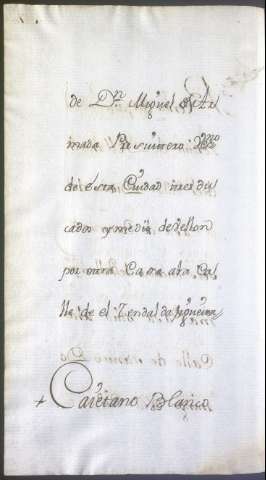 de Dn. Miguel de Ar
mada Presvitero: Vzno
de ésta Ciudad tres du
cados y medio de vellon
por otra Casa a la Ca
lle: de el Tendal da figueira
Caiétano Blanco